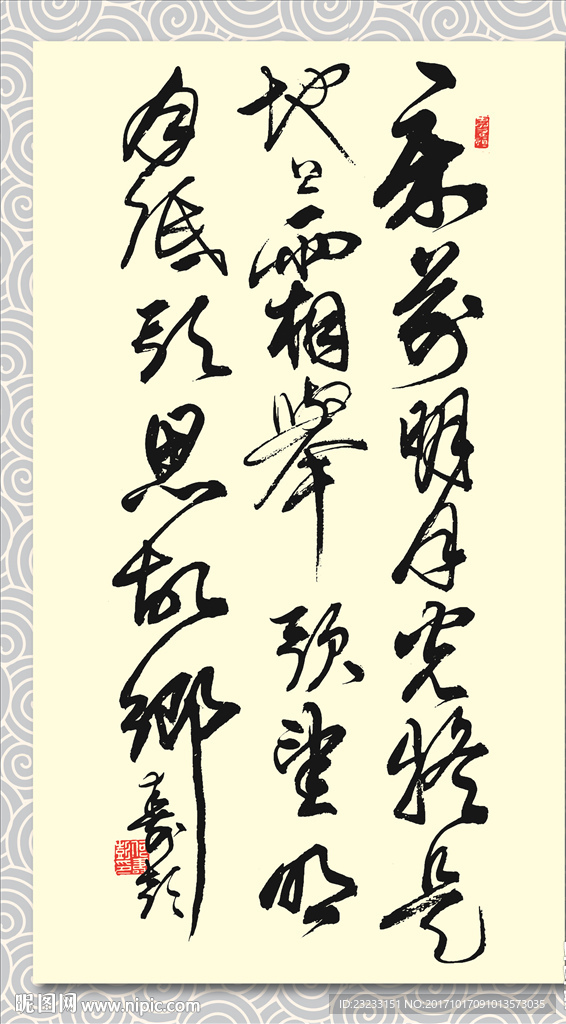 床前明月光疑是
地上霜舉頭望明
月低頭思故鄉
寿彭
昵图网 www.nipic.com
ID:23233151 NO:20171017091013573035